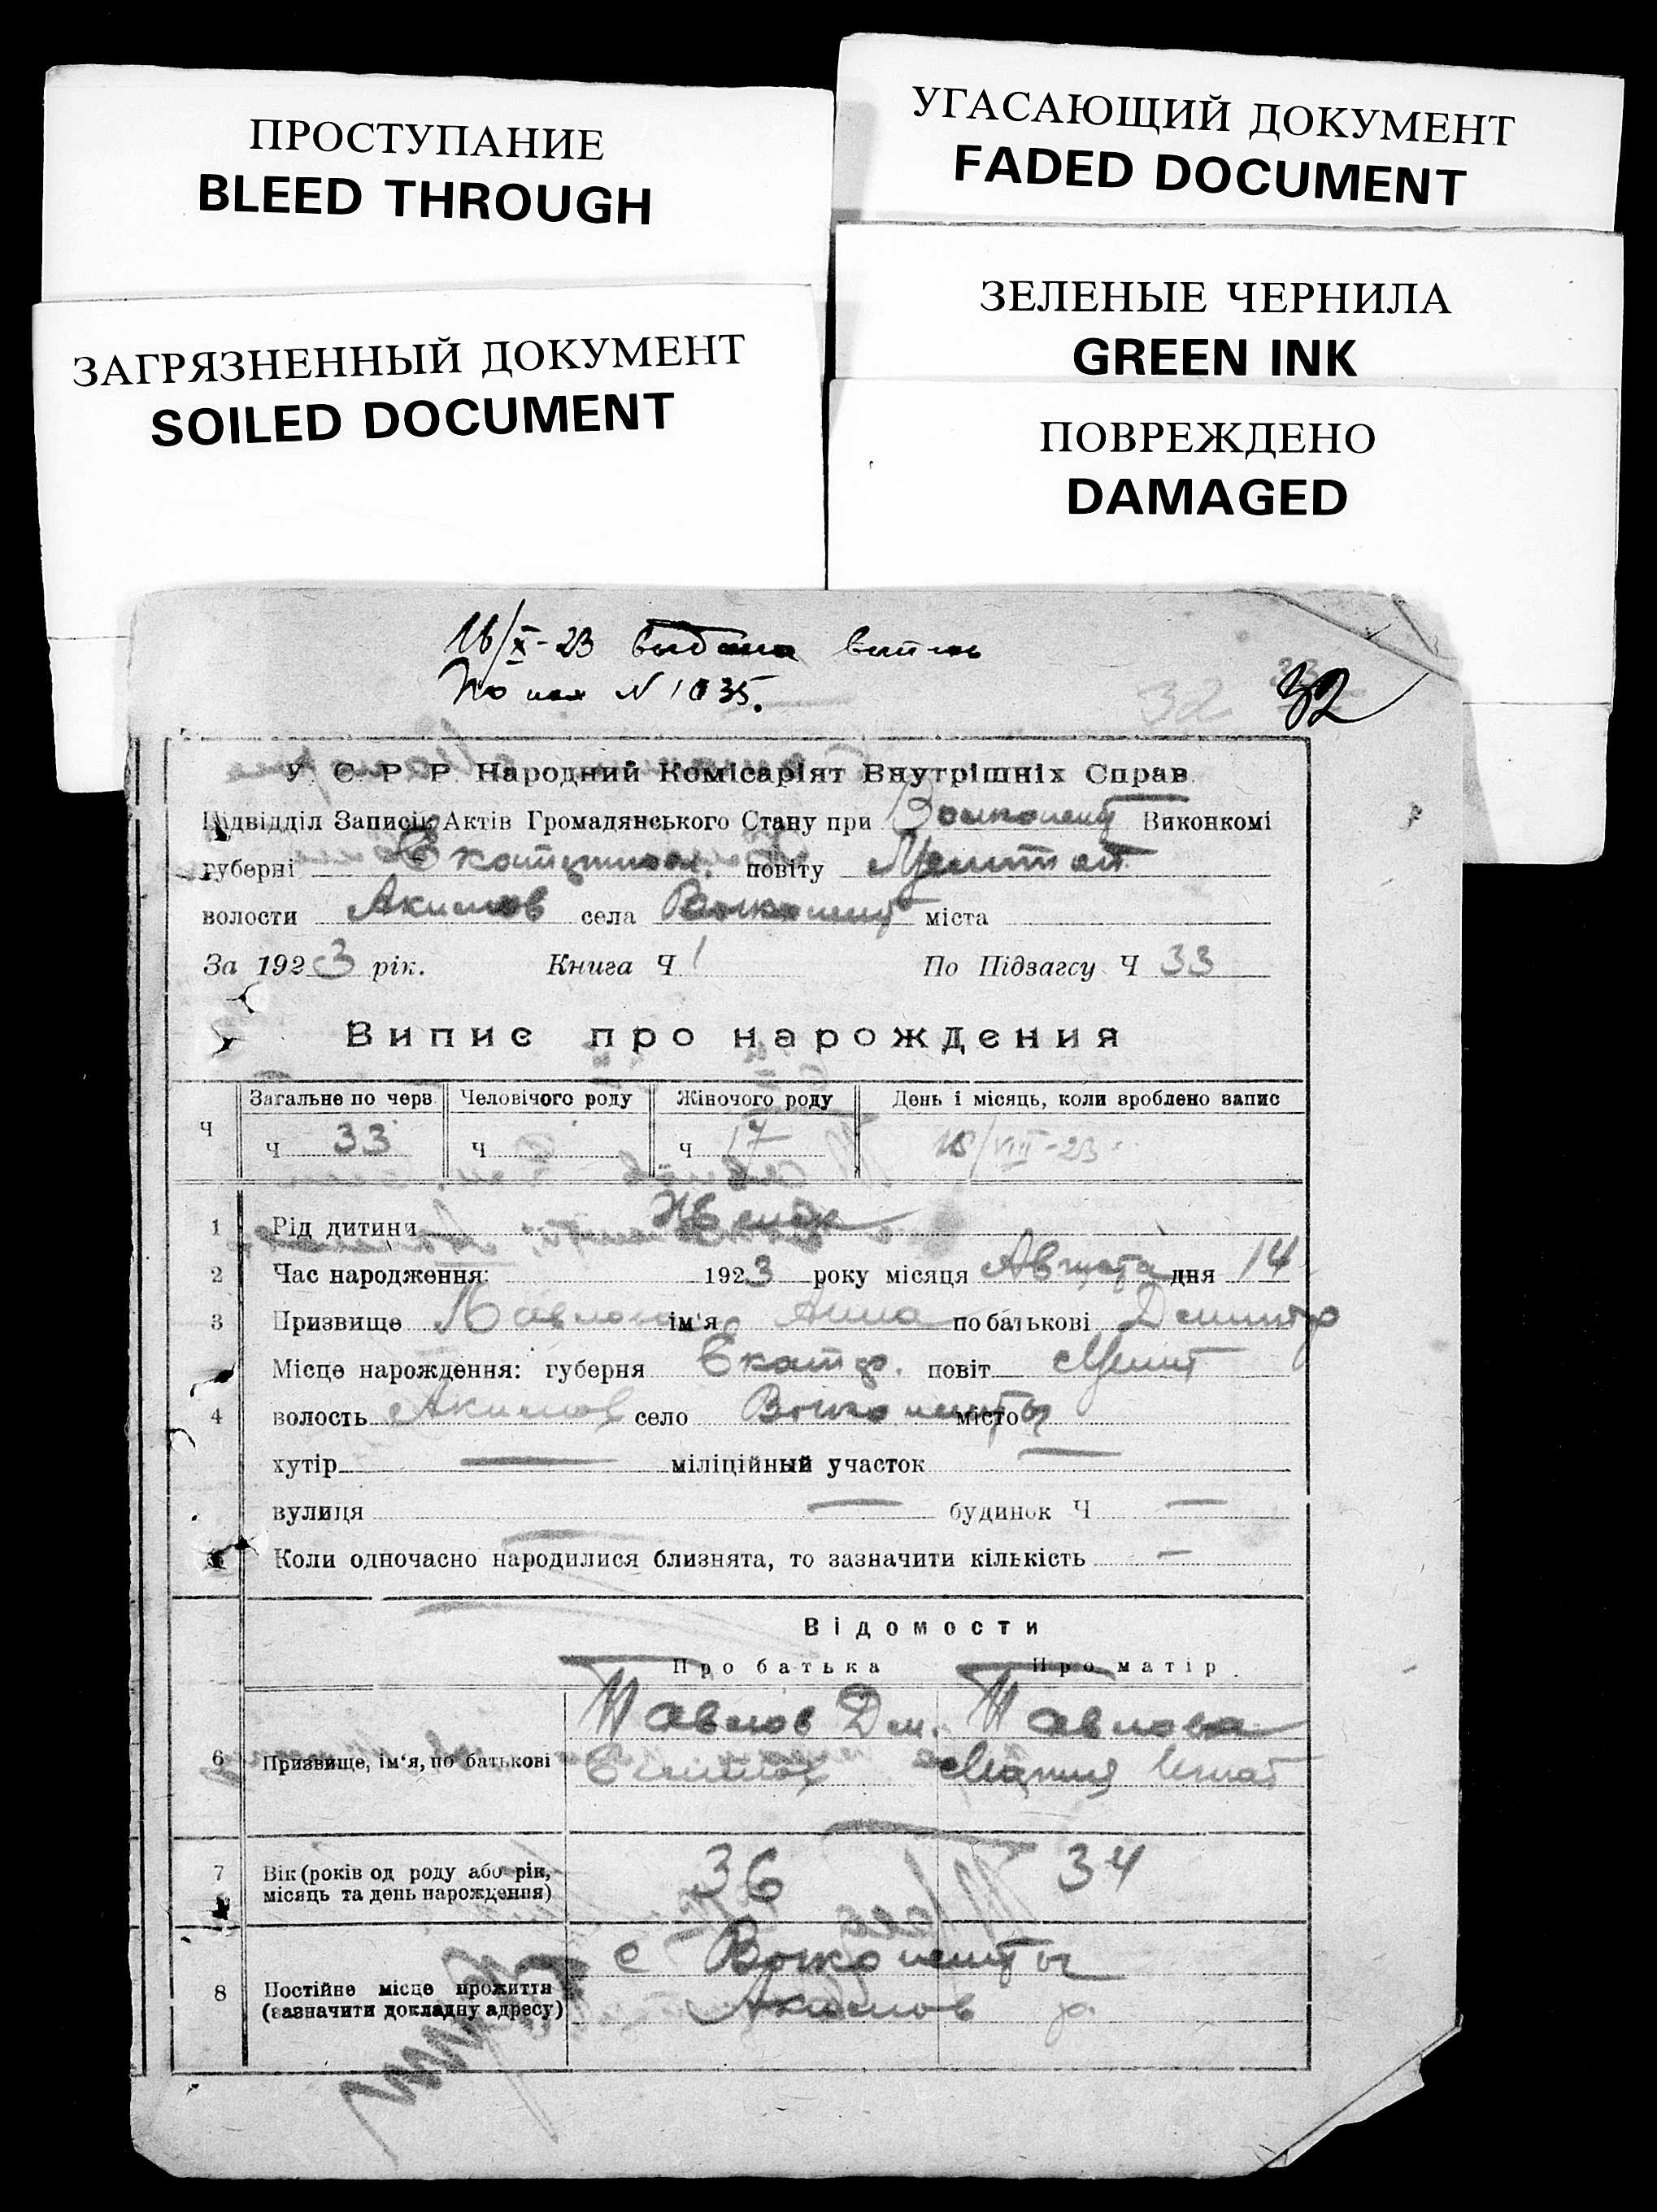 ПРОСТУПАНИЕ
BLEED THROUGH
ЗАГРЯЗНЕННЫЙ ДОКУМЕНТ
SOILED DOCUMENT
УГАСАЮЩИЙ ДОКУМЕНТ
FADED DOCUMENT
ЗЕЛЕНЫЕ ЧЕРНИЛА
GREEN INK
ПОВРЕЖДЕНО
DAMAGED
16/X-23 выдана
По N 1035.
32 32
У. С. Р. Р. Народний Комісаріят Внутрішніх Справ.
Підвідділ Записів Актів Громадянського Стану при Виконкомі
губерні повіту Мелитоп
волости Акимов села міста
За 1923 рік. Книга Ч 1 По Підзагсу Ч 33
Випис про нарождения
Ч Загальне по черв. Человічого роду Жіночого роду День і місяць, коли зроблено запис
Ч 33 Ч Ч 17 15/VIII-23
1 Рід дитини Женск
2 Час народження: 1923 року місяця Августа дня 14
3 Призвище Павлова ім'я Анна по батькові Димитр
Місце нарождення: губерня Екатер. повіт Мелит
4 волость Акимов село місто
хутір міліційный участок
вулиця будинок Ч
Коли одночасно народилися близнята, то зазначити кількість
Відомости
Про батька Про матір
Павлов Дм. Павлова
6 Призвище, ім'я, по батькові Мария Игнат
7 Вік (років од роду або рік, 36 34
місяць та день нарождення)
с
8 Постійне місце прожиття Акимов р.
(зазначити докладну адресу)